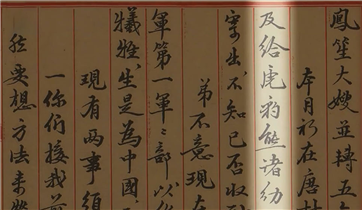 鳳笙大嫂並轉五
本月初在唐
及給虎豹熊諸幼
寄出,不知已否收
弟不意現在
軍第一軍軍部以
犧牲,生是為中國
現有兩事須
一你們接我前
然要想方法來